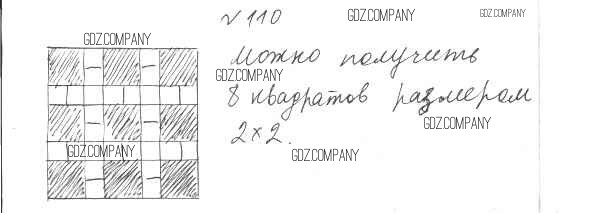 №110
GDZ.COMPANY
GDZ.COMPANY
GDZ.COMPANY
Можно получить
GDZ.COMPANY
8 квадратов размером
GDZ.COMPANY
2×2.
GDZ.COMPANY
GDZ.COMPANY